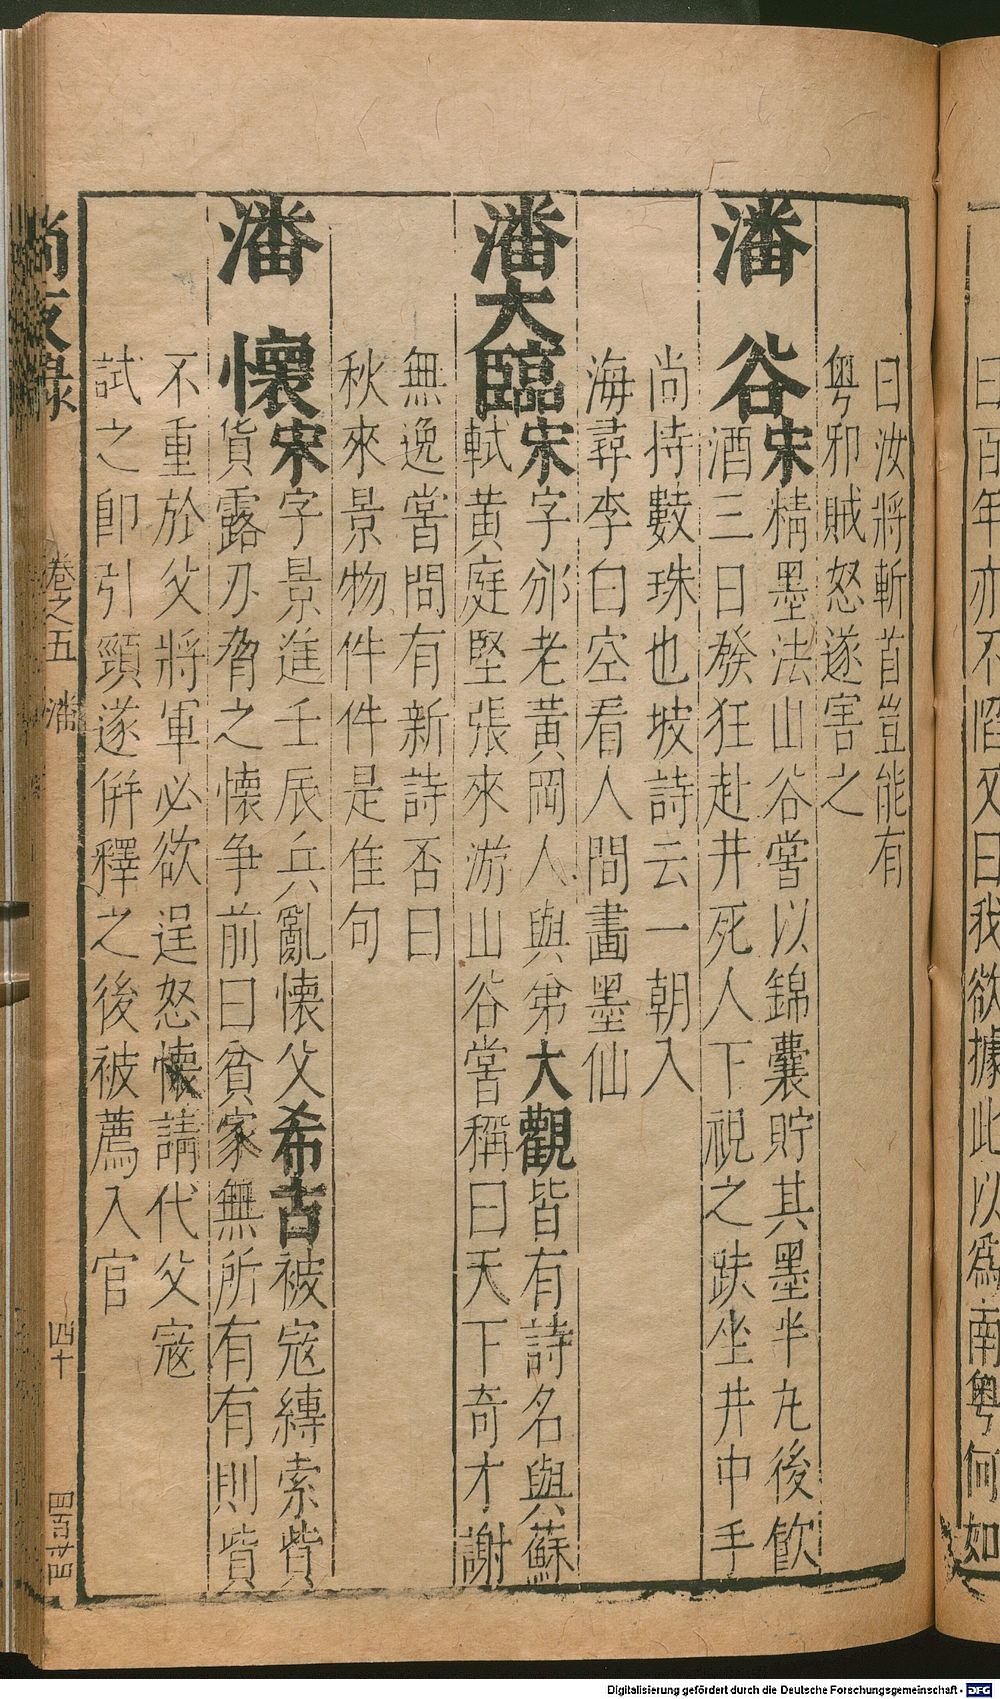 曰百年亦不滔又曰我欲據此以為南粤何如
曰汝將斬首豈能有
粤邪賊怒遂害之
潘谷宋精墨法山谷嘗以錦囊貯其墨半丸後飲
酒三日發狂赴井死人下視之趺坐井中手
尚持數珠也坡詩云一朝入
海尋李白空看人間畫墨仙
潘大臨宋字邠老黃岡人與弟大觀皆有詩名與蘇
軾黃庭堅張來游山谷嘗稱曰天下奇才謝
無逸嘗問有新詩否曰
秋來景物件件是佳句
潘懷宋字景進壬辰兵亂懷父希古被寇縛索貲
貨露刃脅之懷争前曰貧家無所有有則貲
不重於父將軍必欲逞怒懷請代父寇
試之即引頸遂併釋之後被薦入官
尚友錄 卷之五 潘 四十
Digitalisierung gefördert durch die Deutsche Forschungsgemeinschaft - DFG